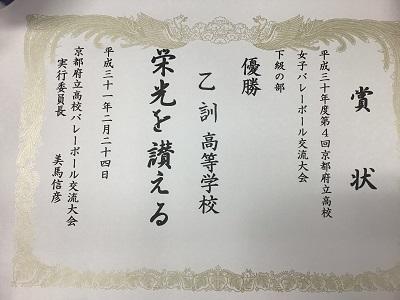 賞状
平成三十年度第4回京都府立高校
女子バレーボール交流大会
下級の部
優勝
乙訓高等学校
栄光を讃える
平成三十一年二月二十四日
京都府立高校バレーボール交流大会
実行委員長　美馬信彦